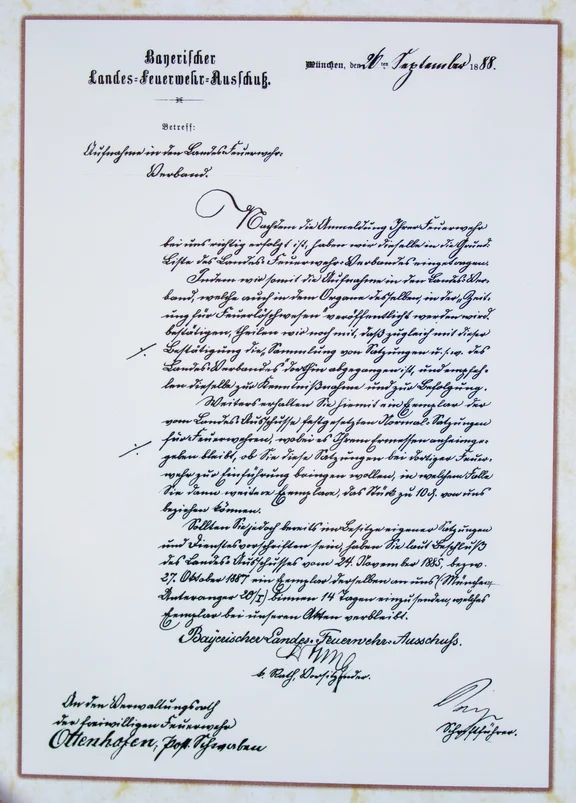 Bayerischer
Landes-Feuerwehr-Ausschuß.
München, den 26ten September 1888.
Betreff:
Aufnahme in den Landes Feuerwehr-
Verband.
Nachdem die Anmeldung Ihrer Feuerwehr
bei uns richtig erfolgt ist, haben wir dieselbe in die Grund-
Liste des Landes-Feuerwehr-Verbandes eingetragen.
Indem wir somit die Aufnahme in den Landes-Ver-
band, welche auch in dem Organe desselben, in der „Zeit-
ung für Feuerlöschwesen" veröffentlicht werden wird,
bestätigen, theilen wir noch mit, daß zugleich mit dieser
Bestätigung die „Sammlung von Satzungen u.s.w. des
Landes-Verbandes" dorthin abgegangen ist, und empfeh-
len dieselbe zur Kenntnißnahme und zur Befolgung.
Weiters erhalten Sie hiemit ein Exemplar der
vom Landes-Ausschusse festgesetzten Normal-Satzungen
für Feuerwehren, wobei es Ihrem Ermessen anheimge-
geben bleibt, ob Sie diese Satzungen bei dortiger Feuer-
wehr zur Einführung bringen wollen, in welchem Falle
Sie dann weitere Exemplare, das Stück zu 10 ₰. von uns
beziehen können.
Sollten Sie jedoch bereits im Besitze eigener Satzungen
und Dienstesvorschriften sein, haben Sie laut Beschluß
des Landes-Ausschusses vom 24. November 1885, bezw.
27. Oktober 1887 ein Exemplar derselben an uns (München,
Unteranger 20/I) binnen 14 Tagen einzusenden, welches
Exemplar bei unseren Akten verbleibt.
Bayerischer Landes-Feuerwehr-Ausschuss.
k. Rath, Vorsitzender.
An den Verwaltungsrath
der freiwilligen Feuerwehr
Ottenhofen, Post Schwaben
Schriftführer.